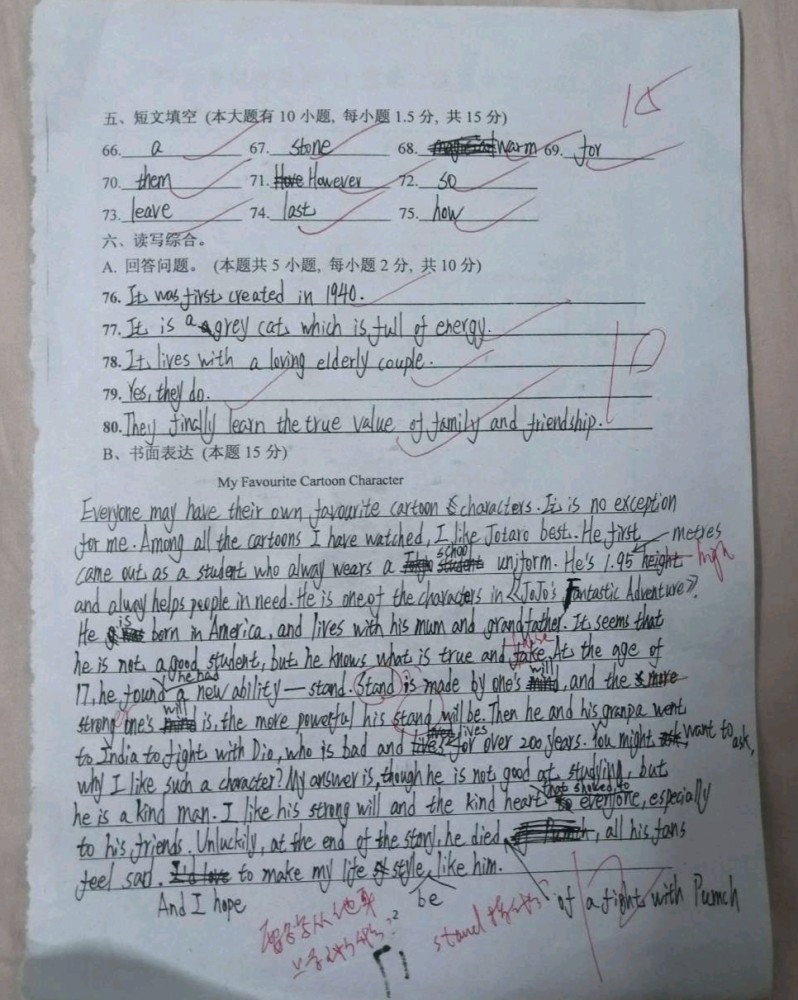 15
五、短文填空 (本大题有 10 小题, 每小题 1.5 分, 共 15 分)
66. a 67. stone 68. warm 69. for
70. them 71. However 72. so
73. leave 74. last 75. how
六、读写综合。
A. 回答问题。 (本题共 5 小题, 每小题 2 分, 共 10 分)
76. It was first created in 1940.
77. It is a grey cat which is full of energy.
78. It lives with a loving elderly couple.
79. Yes, they do.
80. They finally learn the true value of family and friendship.
10
B、书面表达 (本题 15 分)
My Favourite Cartoon Character
Everyone may have their own favourite cartoon characters. It is no exception
for me. Among all the cartoons I have watched, I like Jotaro best. He first metres
came out as a student who alway wears a school uniform. He's 1.95 height high
and alway helps people in need. He is one of the characters in 《JoJo's Fantastic Adventure》.
He is born in America, and lives with his mum and grandfather. It seems that
he is not a good student, but he knows what is true and fake. At the age of
17, he found he had a new ability — stand. Stand is made by one's will, and the more
strong one's will is, the more powerful his stand will be. Then he and his granpa went
to India to fight with Dio, who is bad and lives for over 200 years. You might want to ask,
why I like such a character? My answer is, though he is not good at studying, but
he is a kind man. I like his strong will and the kind heart that showed to everyone, especially
to his friends. Unluckily, at the end of the story, he died, all his fans
feel sad. to make my life style like him.
And I hope be of a fight with Pumch
stand